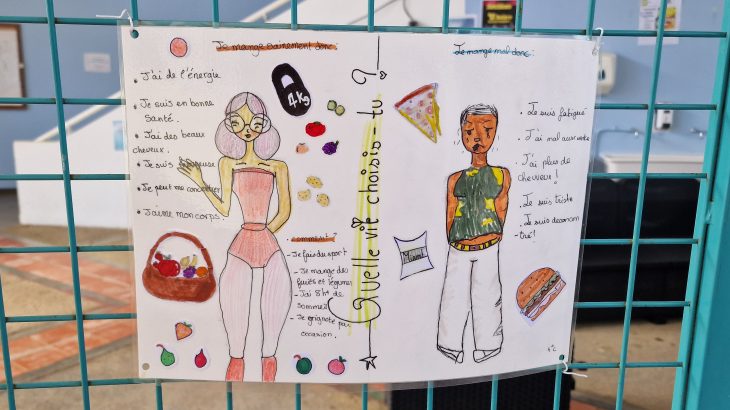 Je mange sainement donc:
. J'ai de l'énergie
. Je suis en bonne
Santé.
. J'ai des beaux
cheveux.
. Je suis
. Je peut me concentrer
. J'aime mon corps
4kg
comment ?
- Je fais du sport
- Je mange des
fruits et légumes
- J'ai 8h de
sommeil
- Je grignote par
occasion.
Quelle vie choisis-tu ?
Je mange mal donc:
. Je suis fatigué
. J'ai mal au ventre
. J'ai plus de
cheveux !
. Je suis triste
. Je suis déconcen
-tré!
4°C